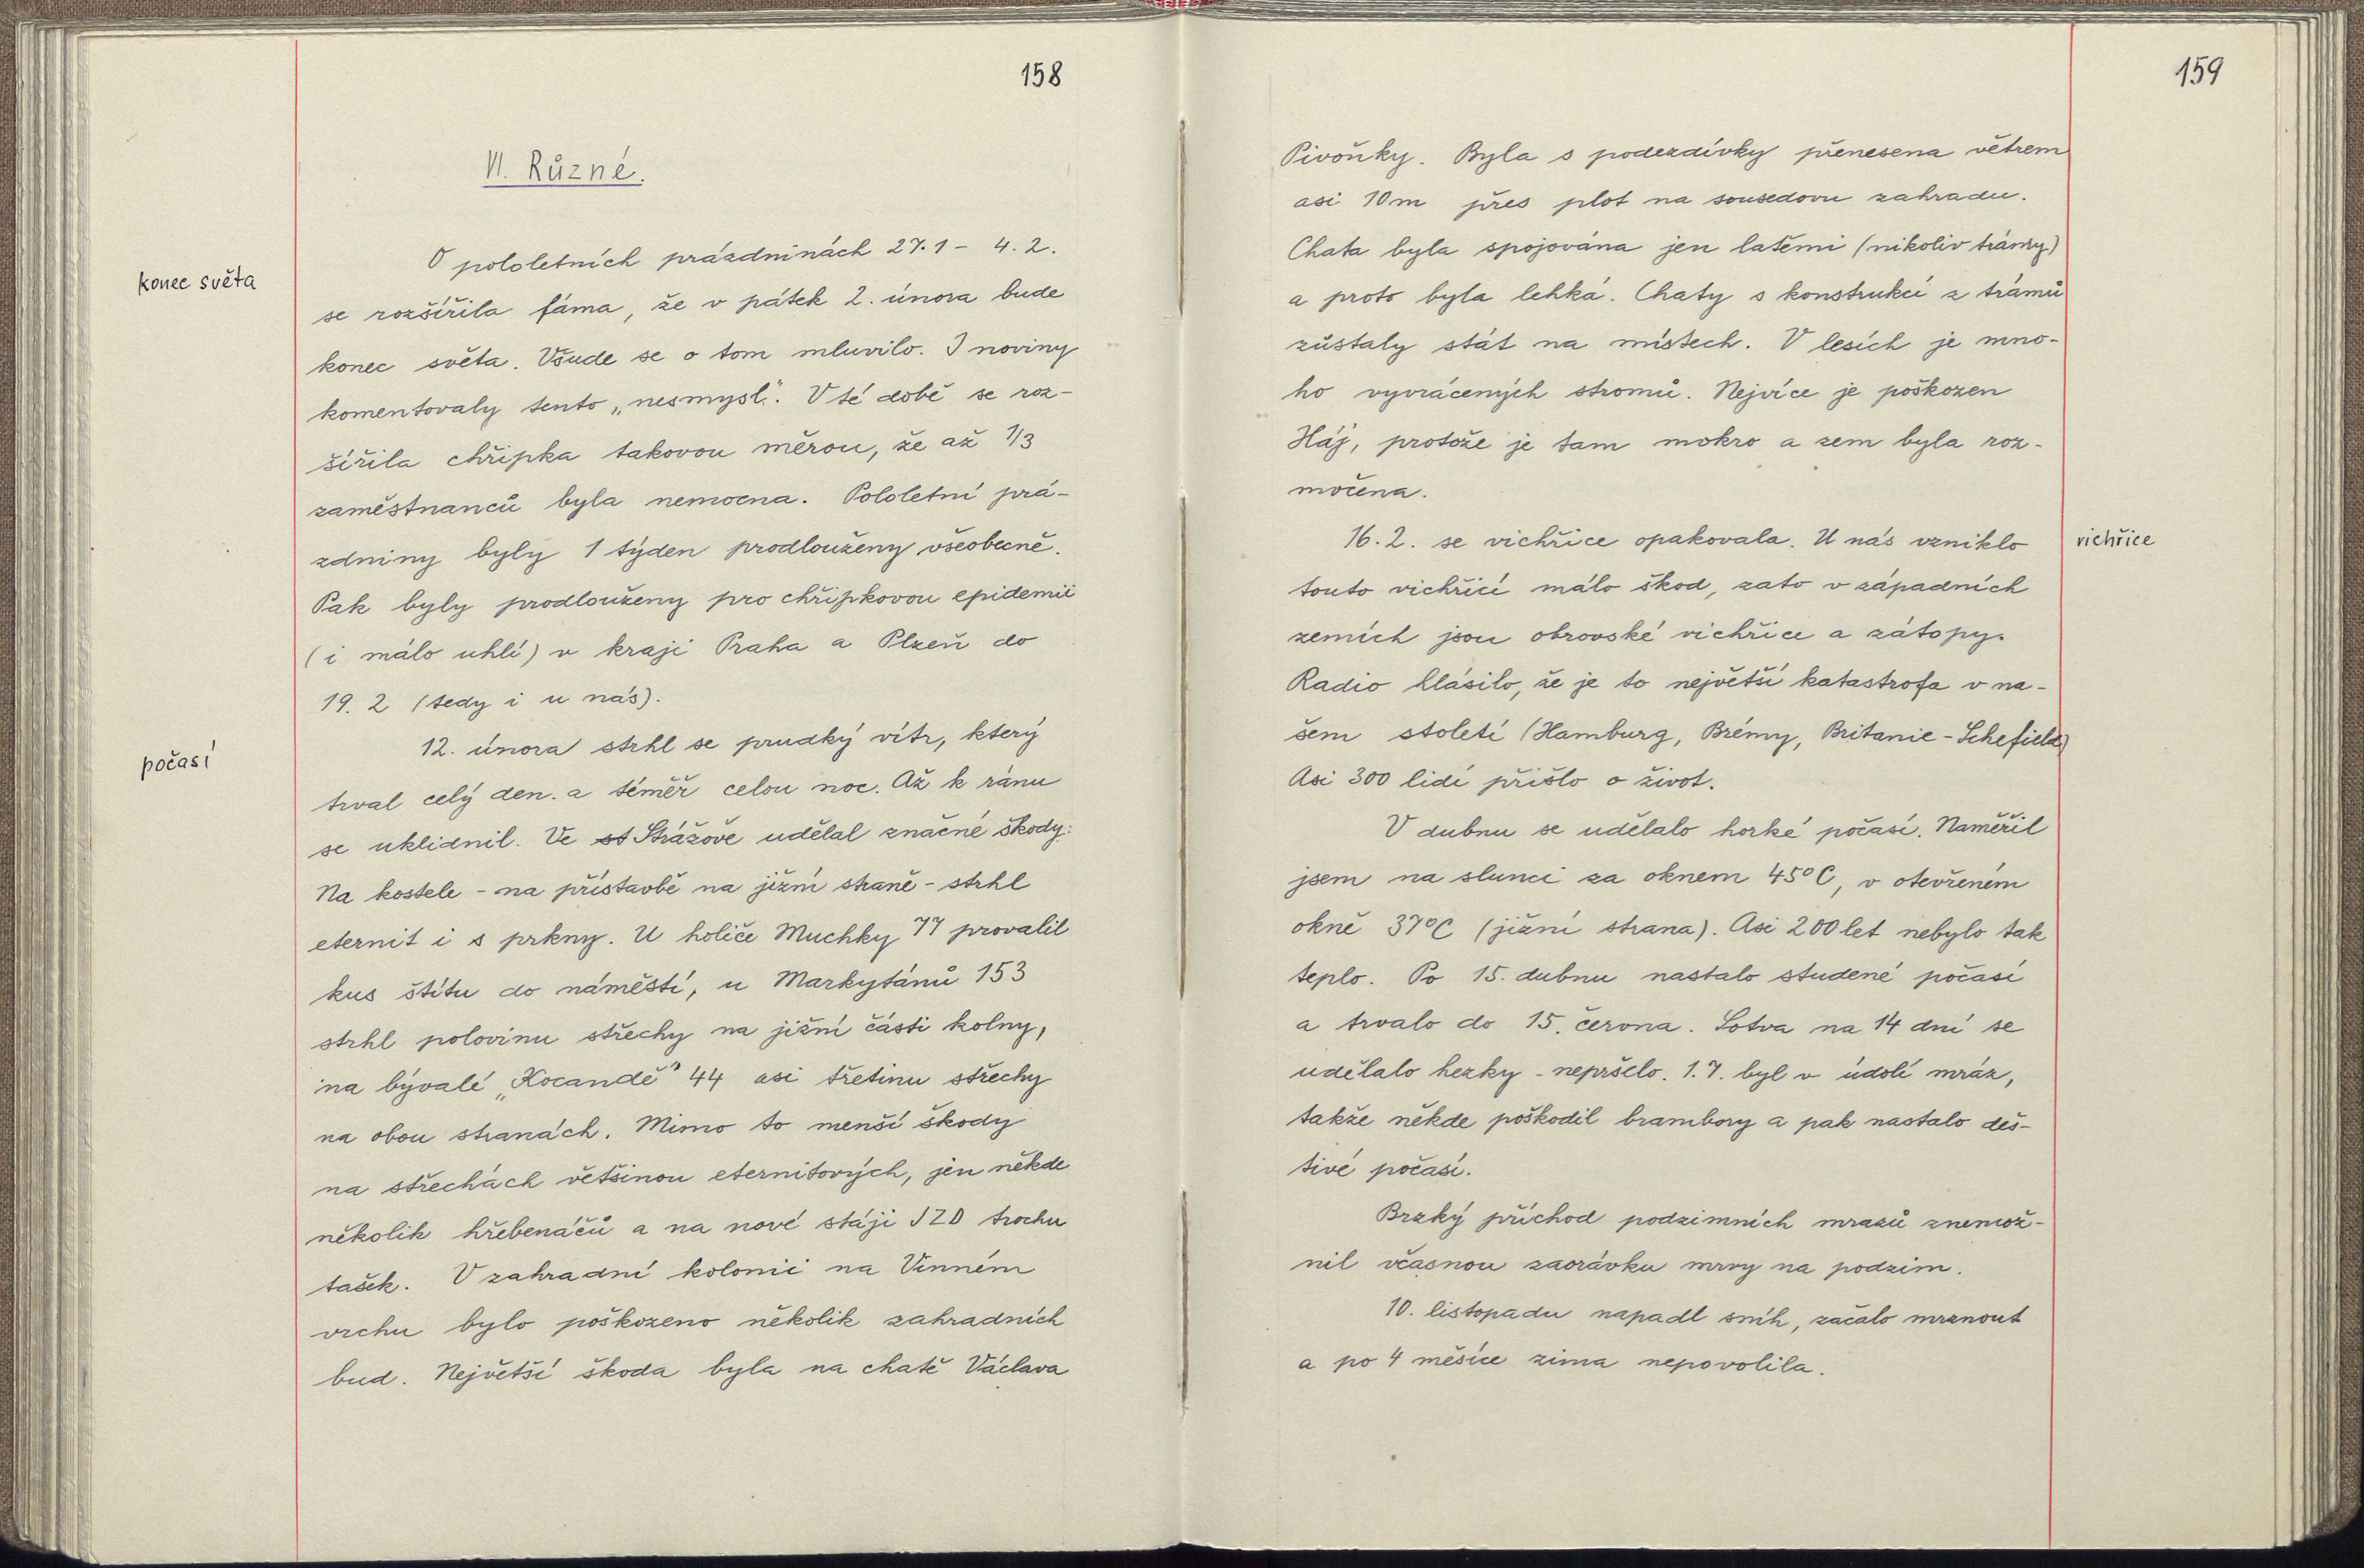 158
VI. Různé.
konec světa
O pololetních prázdninách 27.1 - 4.2.
se rozšířila fáma, že v pátek 2. února bude
konec světa. Všude se o tom mluvilo. I noviny
komentovaly tento „nesmysl". V té době se roz-
šířila chřipka takovou měrou, že až 1/3
zaměstnanců byla nemocna. Pololetní prá-
zdniny byly 1 týden prodlouženy všeobecně.
Pak byly prodlouženy pro chřipkovou epidemii
(i málo uhlí) v kraji Praha a Plzeň do
19. 2 (tedy i u nás).
počasí
12. února strhl se prudký vítr, který
trval celý den. a téměř celou noc. Až k ránu
se uklidnil. Ve st Strážově udělal značné škody:
Na kostele - na přístavbě na jižní straně - strhl
eternit i s prkny. U holiče Muchky 77 provalil
kus štítu do náměstí, u Markytánů 153
strhl polovinu střechy na jižní části kolny,
na bývalé „Kocandě" 44 asi třetinu střechy
na obou stranách. Mimo to menší škody
na střechách většinou eternitových, jen někde
několik hřebenáčů a na nové stáji JZD trochu
tašek. V zahradní kolonii na Vinném
vrchu bylo poškozeno několik zahradních
bud. Největší škoda byla na chatě Václava
159
Pivoňky. Byla s podezdívky přenesena větrem
asi 10m přes plot na sousedovu zahradu.
Chata byla spojována jen latěmi (nikoliv trámy)
a proto byla lehká. Chaty s konstrukcí z trámů
zůstaly stát na místech. V lesích je mno-
ho vyvrácených stromů. Nejvíce je poškozen
Háj, protože je tam mokro a zem byla roz-
močena.
16. 2. se vichřice opakovala. U nás vzniklo
vichřice
touto vichřicí málo škod, zato v západních
zemích jsou obrovské vichřice a zátopy.
Radio hlásilo, že je to největší katastrofa v na-
šem století (Hamburg, Brémy, Britanie - Schefield)
Asi 300 lidí přišlo o život.
V dubnu se udělalo horké počasí. Naměřil
jsem na slunci za oknem 45°C, v otevřeném
okně 37°C (jižní strana). Asi 200 let nebylo tak
teplo. Po 15. dubnu nastalo studené počasí
a trvalo do 15. června. Sotva na 14 dní se
udělalo hezky - nepršelo. 1. 7. byl v údolí mráz,
takže někde poškodil brambory a pak nastalo deš-
tivé počasí.
Brzký příchod podzimních mrazů znemož-
nil včasnou zaorávku mrvy na podzim.
10. listopadu napadl sníh, začalo mrznout
a po 4 měsíce zima nepovolila.